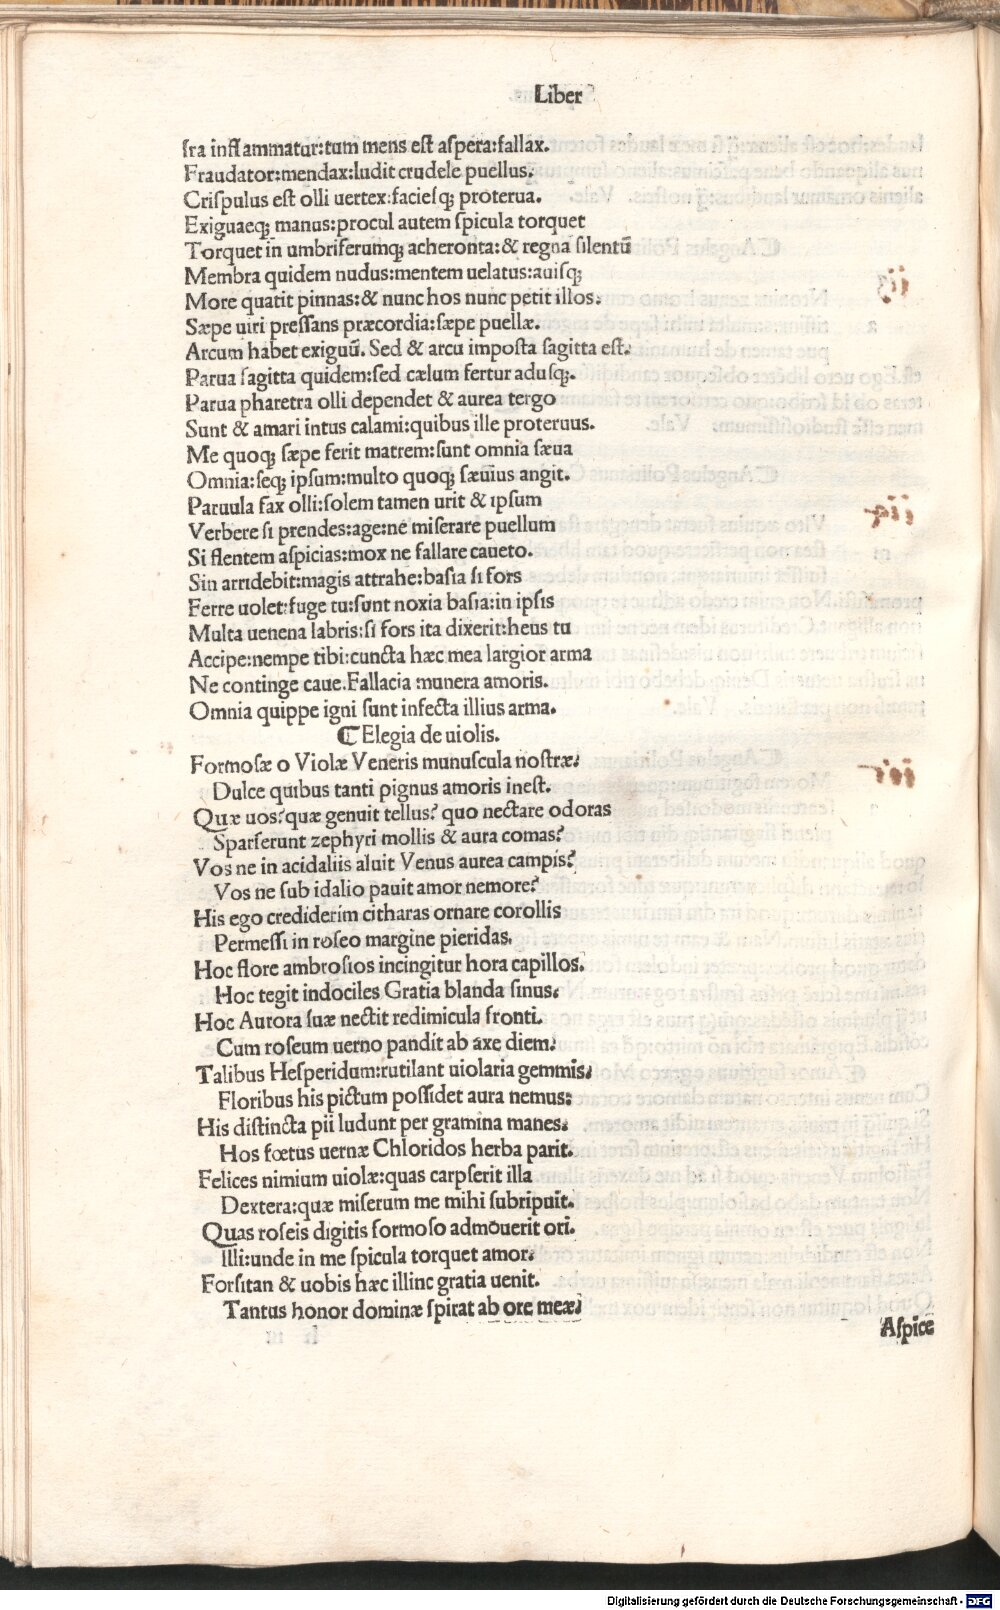 Liber
Ira inflammatur:tum mens est aspera:fallax.
Fraudator:mendax:ludit crudele puellus.
Crispulus est olli uertex:faciesqꝫ proterua.
Exiguaeqꝫ manus:procul autem spicula torquet
Torquet in umbriferumqꝫ acheronta:& regna silentū
Membra quidem nudus:mentem uelatus:auisqꝫ
More quatit pinnas:& nunc hos nunc petit illos:
Sæpe uiri pressans præcordia:sæpe puellæ.
Arcum habet exiguū. Sed & arcu imposta sagitta est.
Parua sagitta quidem:sed cælum fertur adusqꝫ.
Parua pharetra olli dependet & aurea tergo
Sunt & amari intus calami:quibus ille proteruus.
Me quoqꝫ sæpe ferit matrem:sunt omnia sæua
Omnia:seqꝫ ipsum:multo quoqꝫ sæuius angit.
Paruula fax olli:solem tamen urit & ipsum
Verbere si prendes:age:ne miserare puellum
Si flentem aspicias:mox ne fallare caueto.
Sin arridebit:magis attrahe:basia si fors
Ferre uolet:fuge tu:sunt noxia basia:in ipsis
Multa uenena labris:si fors ita dixerit:heus tu
Accipe:nempe tibi:cuncta hæc mea largior arma
Ne continge caue.Fallacia munera amoris.
Omnia quippe igni sunt infecta illius arma.
⁋ Elegia de uiolis.
Formosæ o Violæ Veneris munuscula nostræ:
Dulce quibus tanti pignus amoris inest.
Quæ uos? quæ genuit tellus? quo nectare odoras
Sparserunt zephyri mollis & aura comas?
Vos ne in acidaliis aluit Venus aurea campis?
Vos ne sub idalio pauit amor nemore?
His ego crediderim citharas ornare corollis
Permessi in roseo margine pieridas.
Hoc flore ambrosios incingitur hora capillos.
Hoc tegit indociles Gratia blanda sinus:
Hoc Aurora suæ nectit redimicula fronti.
Cum roseum uerno pandit ab axe diem:
Talibus Hesperidum:rutilant uiolaria gemmis:
Floribus his pictum possidet aura nemus:
His distincta pii ludunt per gramina manes:
Hos fœtus uernæ Chloridos herba parit.
Felices nimium uiolæ:quas carpserit illa
Dextera:quæ miserum me mihi subripuit.
Quas roseis digitis formoso admouerit ori.
Illi:unde in me spicula torquet amor:
Forsitan & uobis hæc illinc gratia uenit.
Tantus honor dominæ spirat ab ore meæ:
Aspice
Digitalisierung gefördert durch die Deutsche Forschungsgemeinschaft - DFG